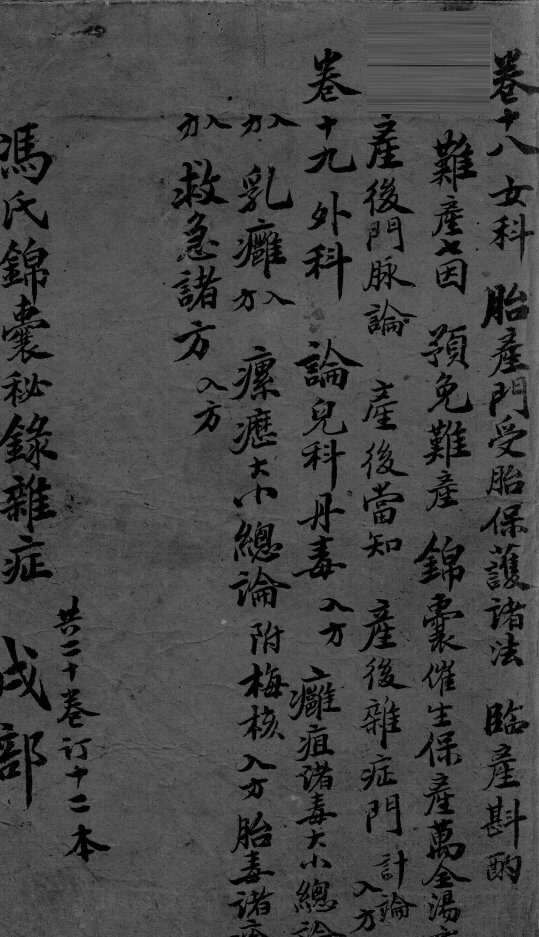 卷十八 女科 胎產門受胎保護諸法 臨產斟酌
難產七因 預免難產 錦囊催生保產萬全湯
產後門脉論 產後當知 產後雜症門 計論 入方
卷十九 外科 論兒科丹毒 入方 癰疽諸毒大小總論
入方 乳癰 入方 瘰癧大小總論 附梅核 入方 胎毒諸
入方 救急諸方 入方
共二十卷订十二本
馮氏錦囊秘錄雜症 戌部